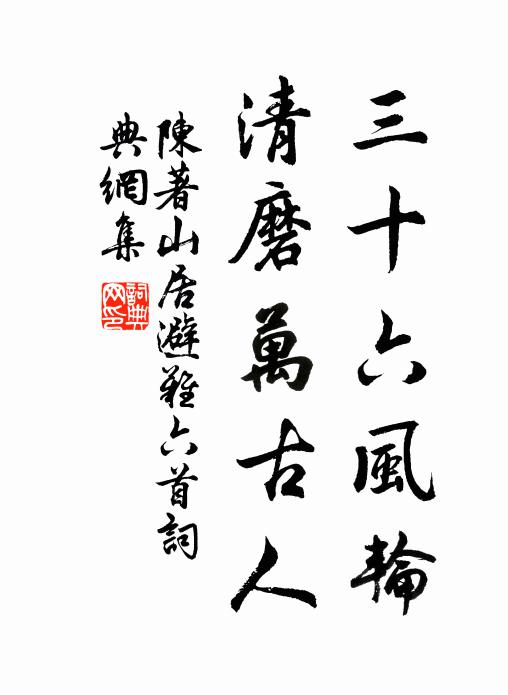 三十六風輪
清磨萬古人
陳著山居避難六首詞
典網集
詞典
网印